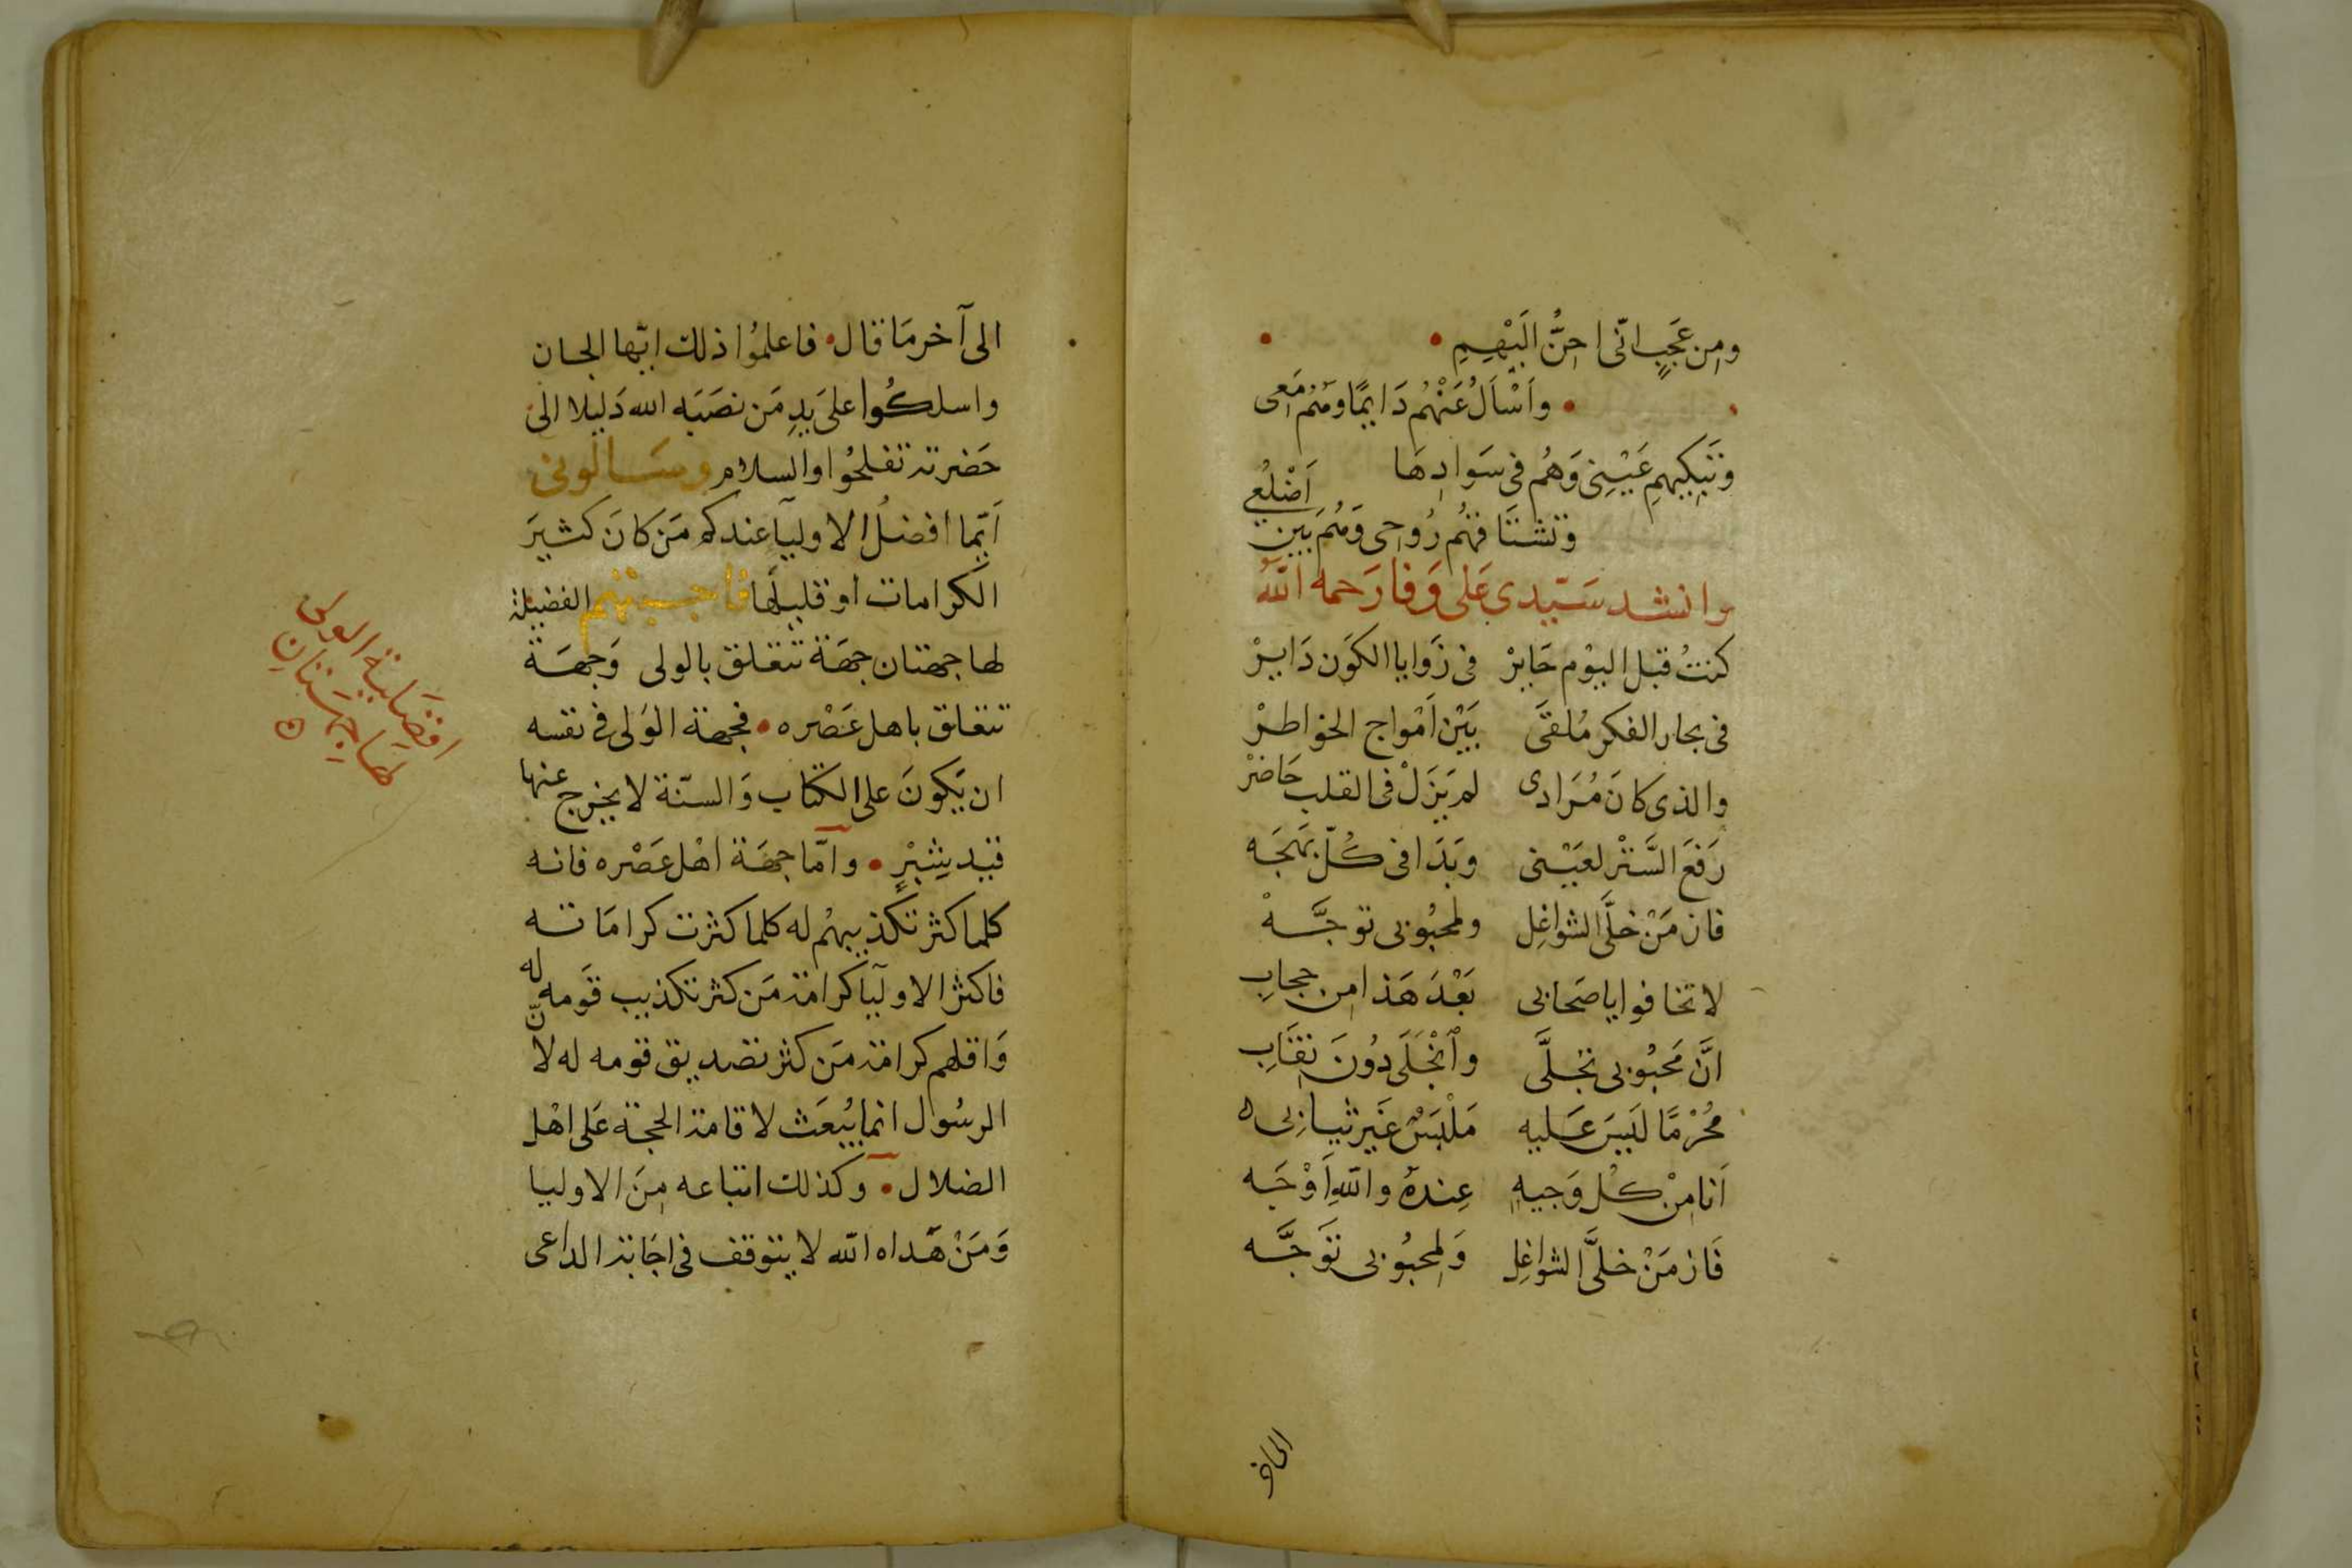 ومِن عَجَبٍ انّى احِنُّ الَيْهِمِ
وأَسْأَلُ عَنْهُم دَايمًا وهُم مَعى
وتَبكِيهمِ عَيْنِى وَهُم فى سَوادِهَا
وتشتَاقهُم رُوحى وَهُم بَين اَضْلُعِى
وانشد سَيّدى عَلى وَفا رَحمه اللهُ
كنتُ قبل اليوْم حَايرْ فى زَوايا الكوَن دَايرْ
فى بحار الفكر مُلقَى بَيْن اَمْواج الخواطرْ
والذى كانَ مُرَادى لم يَزَلْ فى القلب حَاضرْ
رَفَعَ السَّتْر لعَيْنى وبَدَا فى كُلّ بَهجَه
فاز مَنْ خلَّى الشواغِل ولمحبُوبى توجَّهْ
لا تخافوا يا صَحابى بَعْدَ هَذا من حجابِ
انَّ مَحبُوبى تجلَّى وأنْجَلَى دُونَ نِقَابِ
مُحْرمًا لَيسَ عَليه مَلْبَسٌ غَير ثيابِى
اَنا مِنْ كُل وَجيهٍ عِندهُ واللهِ اَوْجَه
فَاز مَنْ خلَّى الشواغِل وَلمحبُوبى توَجَّه
الى آخر
الى آخر مَا قال فاعلمُوا ذلك ايّها الجان
واسلكُوا علَى يَدِ مَن نصَبَه الله دَليلا الى
حَضرته تفلحُوا والسلام وسَالونى
اَيّما افضلُ الاوليآ عندكم مَن كانَ كثيرَ
الكرامات او قليلَها فاجبتهم الفضيلة
لها جهتان جهَة تتعَلق بالولى وَجهَة
تتعَلق باهل عَصْره فجهة الوَلى فى نفسه
ان يَكونَ على الكتاب وَالسنّة لا يخرج عنها
قيد شِبْرٍ وامّا جهَة اهْل عَصْره فانه
كلما كثر تكذيبهُم له كلما كثرت كرامَاته
فاكثر الاوليآ كرامة مَن كثر تكذيب قَومه له
وَاقلهم كرامة مَن كثر تصديق قومه له لانّ
الرسُول انما يُبعَث لاقامة الحجة عَلى اهْل
الضلال وكذلك اتباعه مِنَ الاوليا
وَمَنْ هَداه الله لا يتوقف فى اجَابة الداعى
افضَلية الولى
لهَا جِهتَانِ